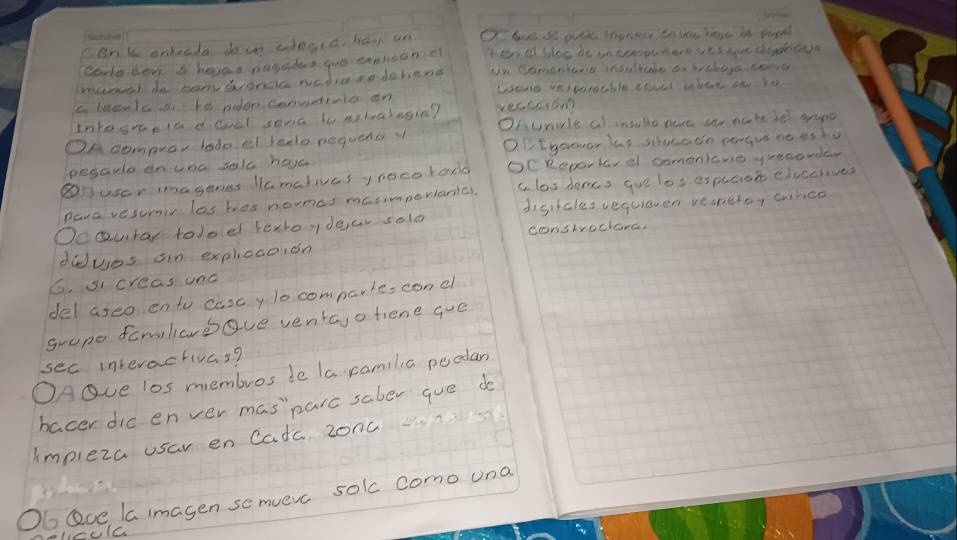 en la entrada de un colegio. hay un
cartel con 5 hojas pegadas que explican el
manual de convivencia nadie se detiene
a leerlo si te piden convertirlo en
Infografia d cual seria tu estrategia?
OA comprar todo el texto pequeño y
pegarlo en una sola hoja
B usar imagenes llamativas y poco texto
para resumir las tres normas mas importantes.
Oc Quitar todo el texto y dejar solo
dibujos sin explicación
6. si creas una
del aseo en tu casa y lo compartes con el
grupo familiar Que ventajo tiene que
sea interactivas?
OA Que los miembros de la familia puedan
hacer clic en ver mas "para saber que de
limpieza usar en cada zona
Ob Que la imagen se mueva sola como una
pelicula
O C Que se puede imprimir en una hoja de papel
en el blog de un compañero ves que
un comentario insultado su trabajo como
usuario responsable cual debe ser tu
reacción?
OA unirle al insulto para ser parte del grupo
OB Ignorar las situación porque no es tu
OC Reportar el comentario y recordar
a los demas que los espacios educativos
digitales requieren respeto y critica
constructora.